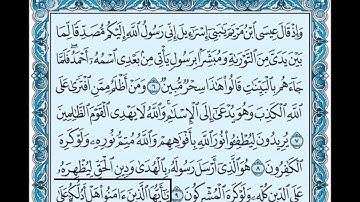 وَإِذْ قَالَ عِيسَى ابْنُ مَرْيَمَ يَٰبَنِىٓ إِسْرَٰٓءِيلَ إِنِّى رَسُولُ ٱللَّهِ إِلَيْكُم مُّصَدِّقًا لِّمَا
بَيْنَ يَدَىَّ مِنَ ٱلتَّوْرَىٰةِ وَمُبَشِّرًۢا بِرَسُولٍ يَأْتِى مِنۢ بَعْدِى ٱسْمُهُۥٓ أَحْمَدُ فَلَمَّا
جَآءَهُم بِٱلْبَيِّنَٰتِ قَالُوا۟ هَٰذَا سِحْرٌ مُّبِينٌ ٦ وَمَنْ أَظْلَمُ مِمَّنِ ٱفْتَرَىٰ عَلَى
ٱللَّهِ ٱلْكَذِبَ وَهُوَ يُدْعَىٰٓ إِلَى ٱلْإِسْلَٰمِ وَٱللَّهُ لَا يَهْدِى ٱلْقَوْمَ ٱلظَّٰلِمِينَ
٧ يُرِيدُونَ لِيُطْفِـُٔوا۟ نُورَ ٱللَّهِ بِأَفْوَٰهِهِمْ وَٱللَّهُ مُتِمُّ نُورِهِۦ وَلَوْ كَرِهَ
ٱلْكَٰفِرُونَ ٨ هُوَ ٱلَّذِىٓ أَرْسَلَ رَسُولَهُۥ بِٱلْهُدَىٰ وَدِينِ ٱلْحَقِّ لِيُظْهِرَهُۥ
عَلَى ٱلدِّينِ كُلِّهِۦ وَلَوْ كَرِهَ ٱلْمُشْرِكُونَ ٩ يَٰٓأَيُّهَا ٱلَّذِينَ ءَامَنُوا۟ هَلْ أَدُلُّكُمْ عَلَىٰ